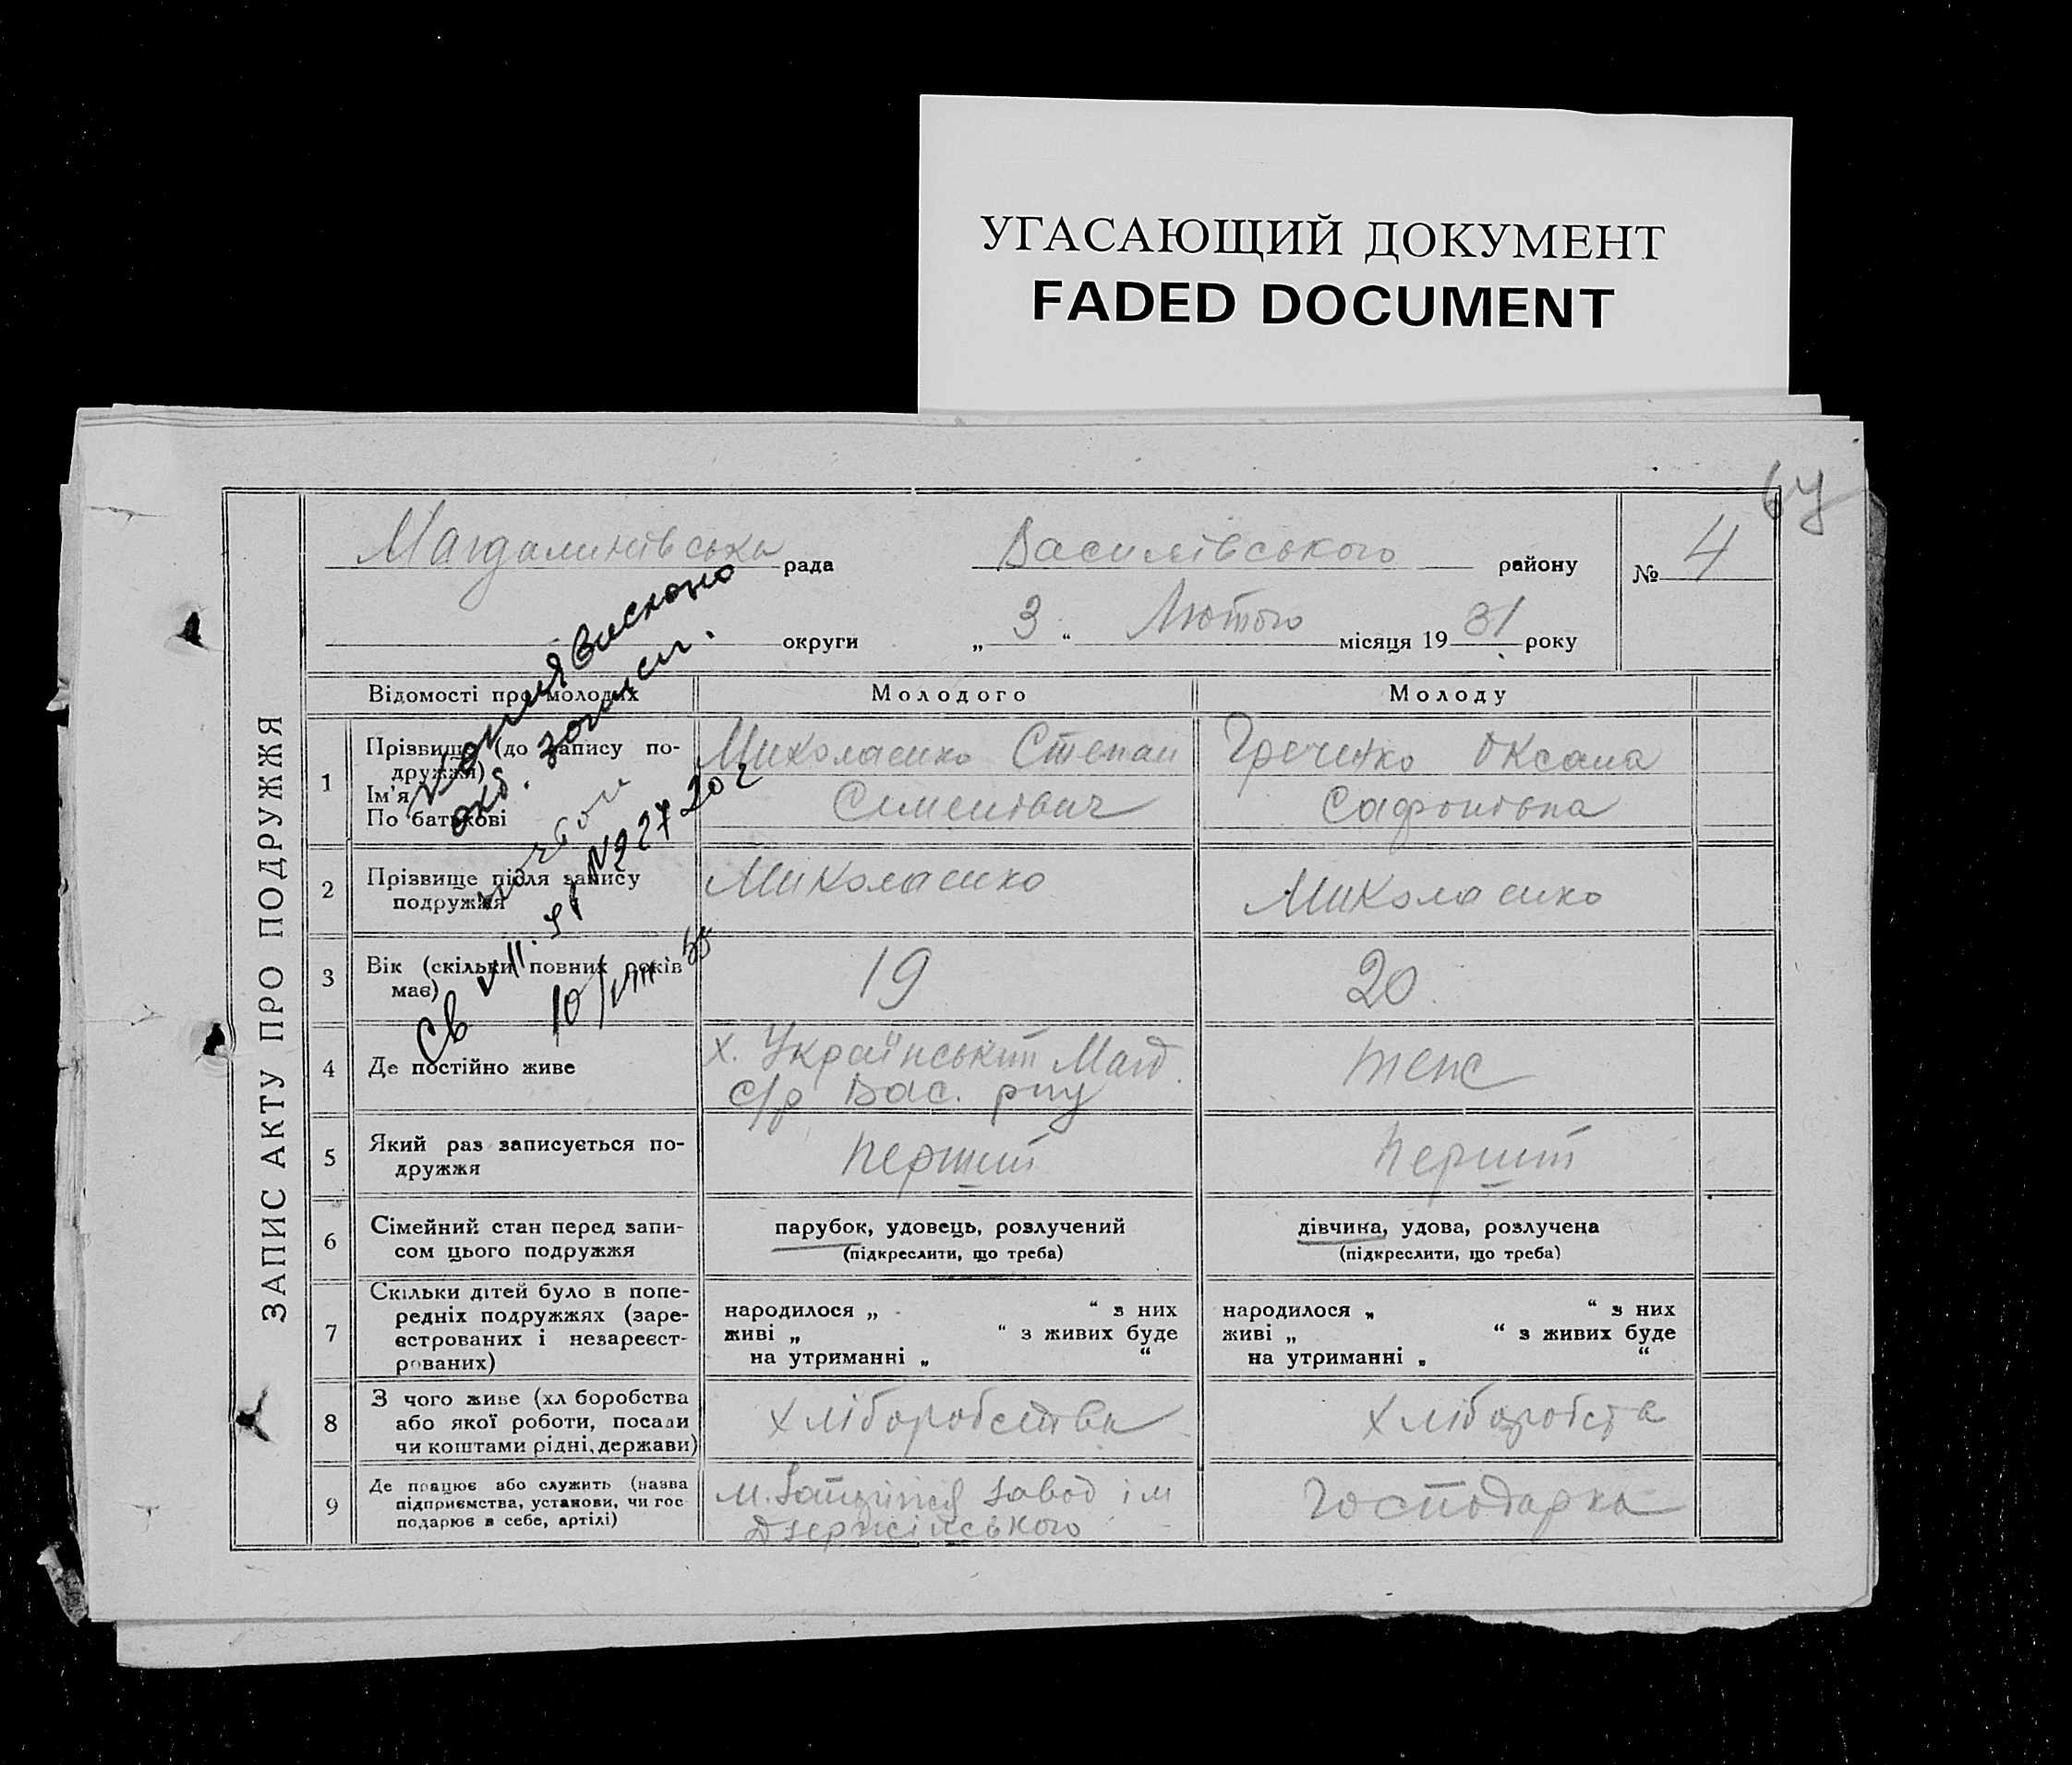 УГАСАЮЩИЙ ДОКУМЕНТ
FADED DOCUMENT
ЗАПИС АКТУ ПРО ПОДРУЖЖЯ
Магдалинівська рада Василівського району № 4
округи „ 3 “ Лютого місяця 19 31 року
Відомості про молодих Молодого Молоду
1 Прізвище (до запису подружжя) Миколаенко Степан Гречтко Оксана
Ім'я
По батькові Семенівич Сафонівна
2 Прізвище після запису Миколаенко Миколаенко
подружжя
3 Вік (скільки повних років 19 20
має)
4 Де постійно живе х. Український Магд. теж
с/р Вас. рну
5 Який раз записується по- перший перший
дружжя
6 Сімейний стан перед запи- парубок, удовець, розлучений дівчина, удова, розлучена
сом цього подружжя (підкреслити, що треба) (підкреслити, що треба)
7 Скільки дітей було в попе-
редніх подружжях (заре- народилося „ “ з них народилося „ “ з них
єстрованих і незареєст- живі „ “ з живих буде живі „ “ з живих буде
рованих) на утриманні „ “ на утриманні „ “
8 З чого живе (хліборобства Хліборобства Хліборобств
або якої роботи, посади
чи коштами рідні, держави)
9 Де працює або служить (назва завод ім Господарка
підприємства, установи, чи гос- Дзержінського
подарює в себе, артілі)
№ 227